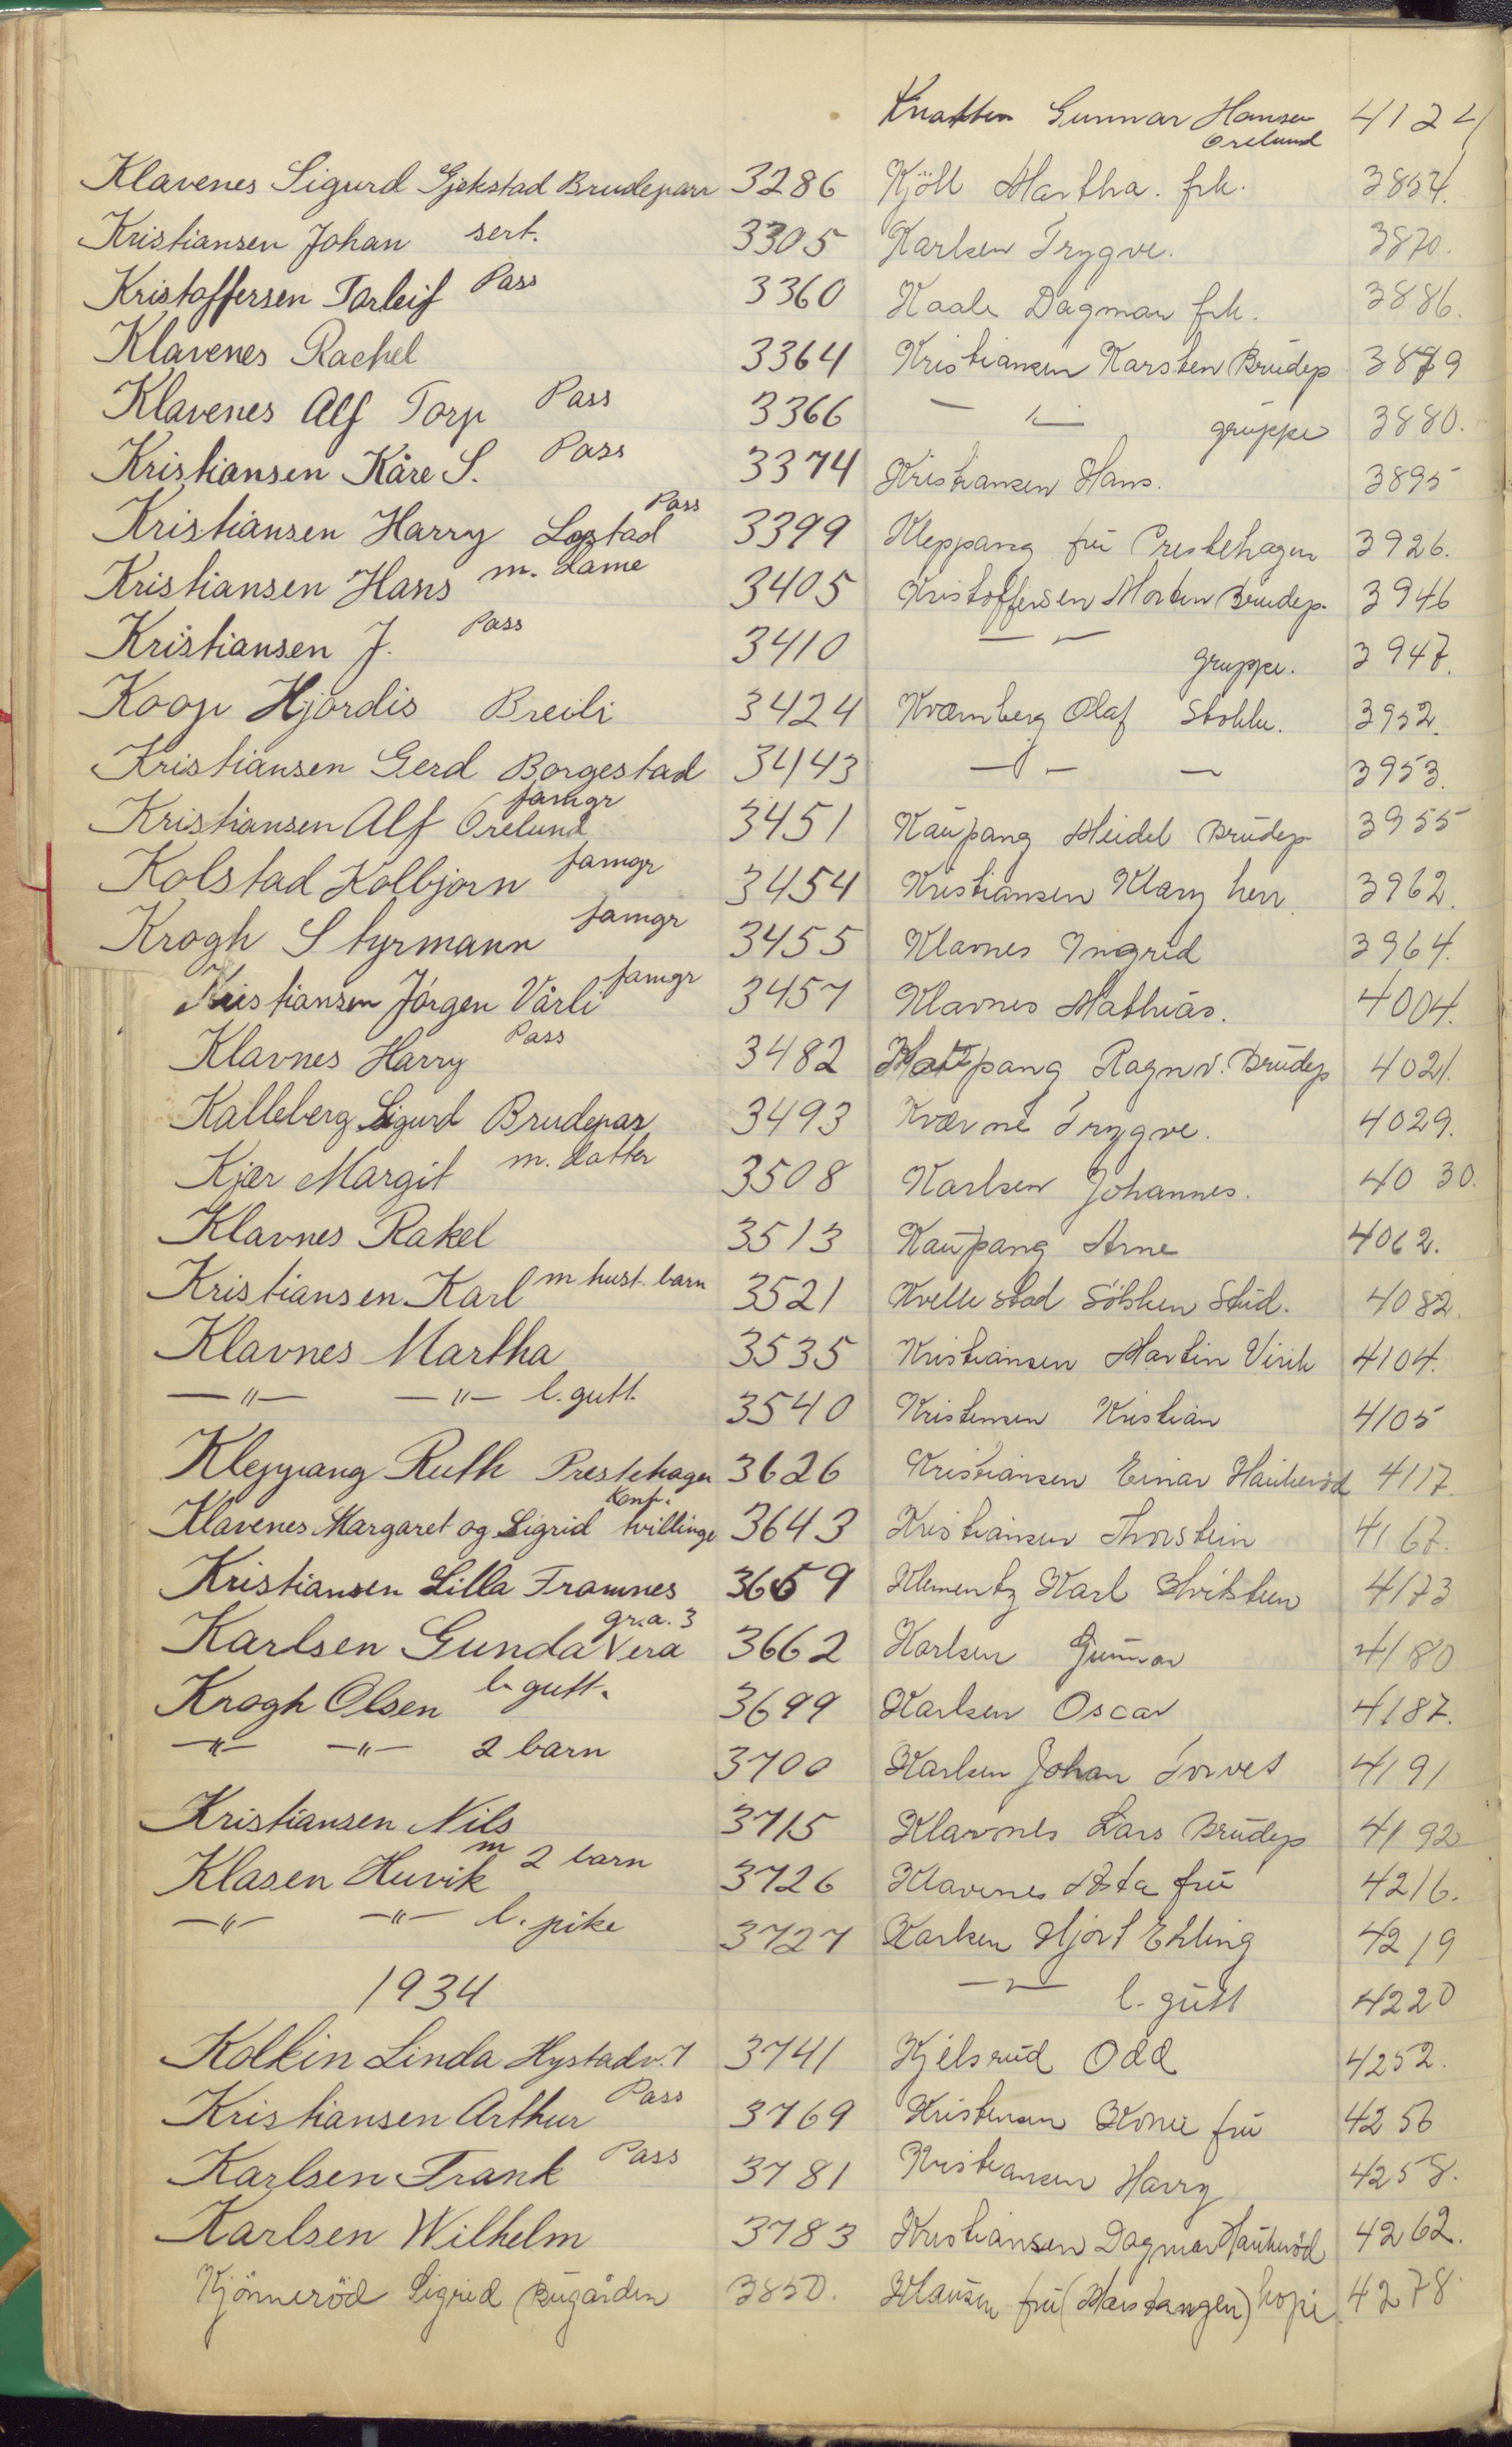 Klavenes Sigurd Gjekstad Brudepar 3286
Kristiansen Johan sert. 3305
Kristoffersen Torleif Pass 3360
Klavenes Rachel 3364
Klavenes Alf Torp Pass 3366
Kristiansen Kåre S. Pass 3374
Kristiansen Harry Lopstad Pass 3399
Kristiansen Hans m. dame 3405
Kristiansen J. Pass 3410
Koop Hjördis Breili 3424
Kristiansen Gerd Borgestad 3443
Kristiansen Alf Orelund famgr 3451
Kolstad Kolbjørn famgr 3454
Krogh Styrmann famgr 3455
Kristiansen Jörgen Vårli famgr 3457
Klavnes Harry Pass 3482
Kalleberg Sigurd Brudepar 3493
Kjær Margit m. datter 3508
Klavnes Rakel 3513
Kristiansen Karl m hust. barn 3521
Klavnes Martha 3535
—"— —"— l. gutt. 3540
Kleppang Ruth Prestehagen 3626
Klavenes Margaret og Sigrid tvillinge Konf. 3643
Kristiansen Lilla Framnes 3659
Karlsen Gunda Vera gr.a. 3 3662
Krogh Olsen l. gutt. 3699
—"— —"— 2 barn 3700
Kristiansen Nils 3715
Klasen Huvik m 2 barn 3726
—"— —"— l. pike 3727
1934
Kolkin Linda Hystadv. 7 3741
Kristiansen Arthur Pass 3769
Karlsen Frank Pass 3781
Karlsen Wilhelm 3783
Kjönneröd Sigrid Bugården 3850.
Knatten Gunnar Hansen 4124
Orelund
Kjöll Martha. frk. 3854.
Karlsen Trygve. 3870.
Kaale Dagmar frk. 3886.
Kristiansen Karsten Brudep 3879
— " — gruppe 3880.
Kristiansen Hans. 3895
Kleppang fru Prestehagen 3926.
Kristoffersen Morten Brudep. 3946
— " — gruppe. 3947.
Kvarnberg Olaf Stokke. 3952.
— " — — 3953.
Kaupang Meidel Brudep 3955
Kristiansen Klary herr 3962.
Klavnes Ingrid 3964.
Klavnes Mathias. 4004.
Kaupang Ragnv. Brudep 4021.
Kværne Trygve. 4029.
Karlsen Johannes. 4030.
Kaupang Arne 4062.
Kvellestad Söbsken Stud. 4082.
Kristiansen Martin Virik 4104.
Kristensen Kristian 4105
Kristiansen Einar Haukeröd 4117.
Kristiansen Thorstein 4167.
Klementz Karl 4173
Karlsen Gunnar 4180
Karlsen Oscar 4187.
Karlsen Johan Torvet 4191
Klavnes Lars Brudep 4192
Klavenes Asta fru 4216.
Karlsen Hjort Ehling 4219
— " — l. gutt 4220
Kjelsrud Odd 4252.
Kristensen fru 4256
Kristiansen Harry 4258.
Kristiansen Dagmar Haukeröd 4262.
Klausen fru kopi 4278